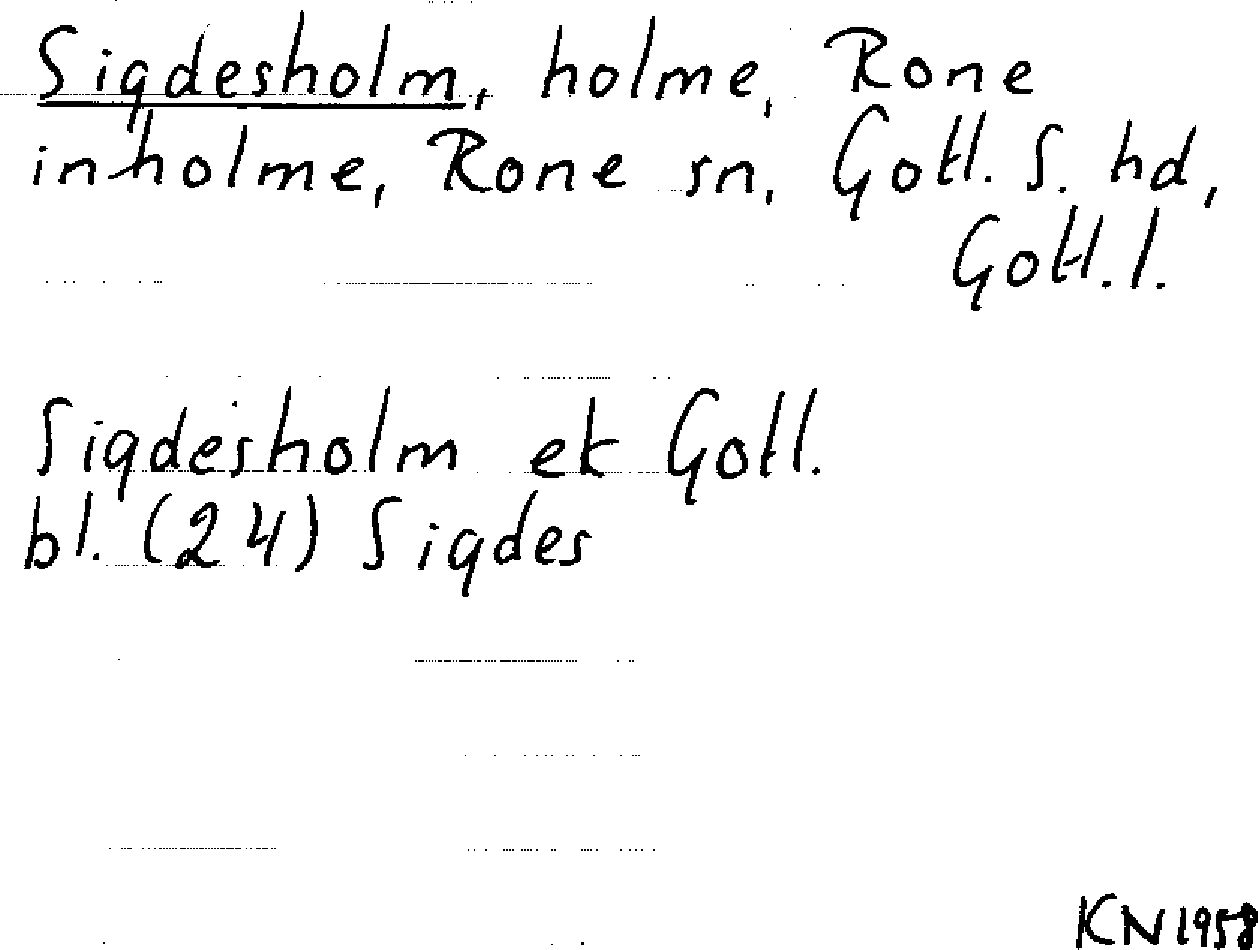 Sigdesholm, holme, Rone
inholme, Rone sn, Gotl. S. hd,
Gotl. l.
Sigdesholm ek Gotl.
bl. (24) Sigdes
KN 1958